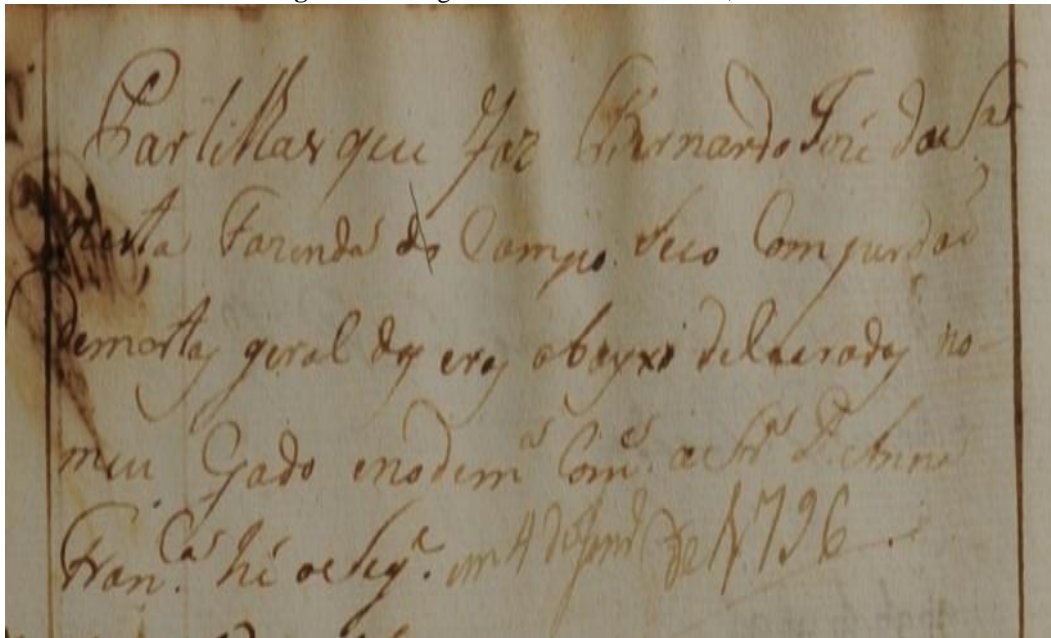 Partilhas que faz Bernardo José da S.ª
nesta Fazenda do Campo Seco Com
demortas geral das eras abayxo declaradas no
meu Gado enodem.as Com.es a Sr.ª D. Anna
Fran.ca hé o Seg.e em 4 de de 1796